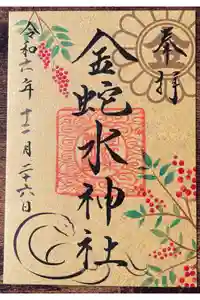 奉拝
金蛇水神社
令和六年十二月二十六日